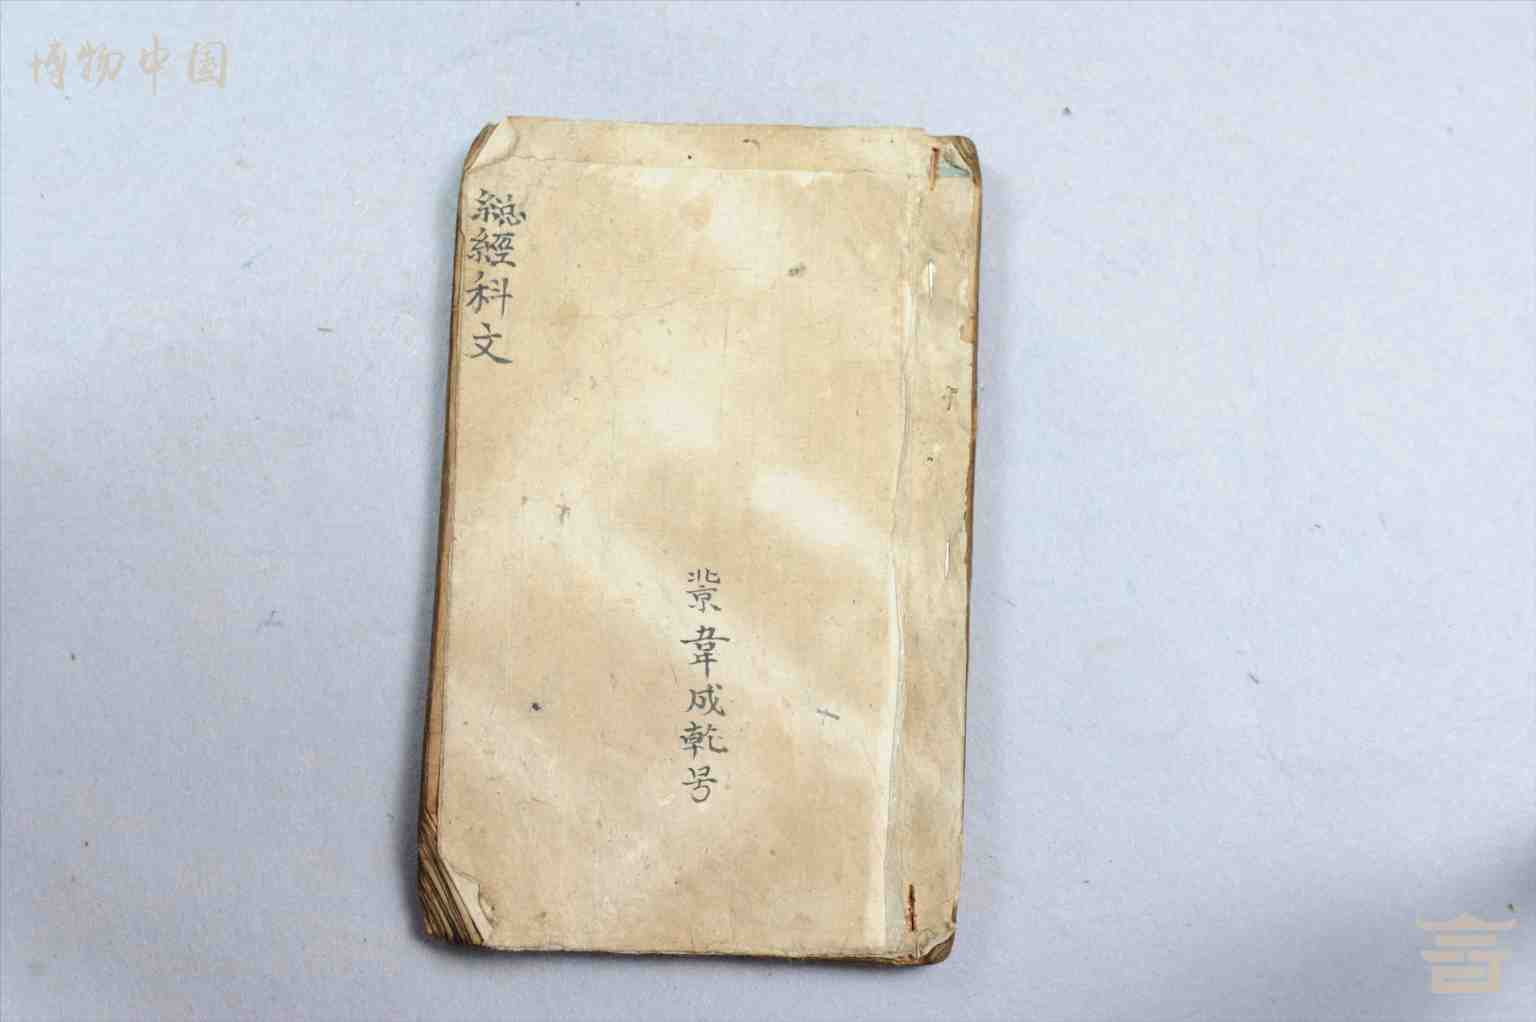 博物中国
総經科文
北京韋成乾号